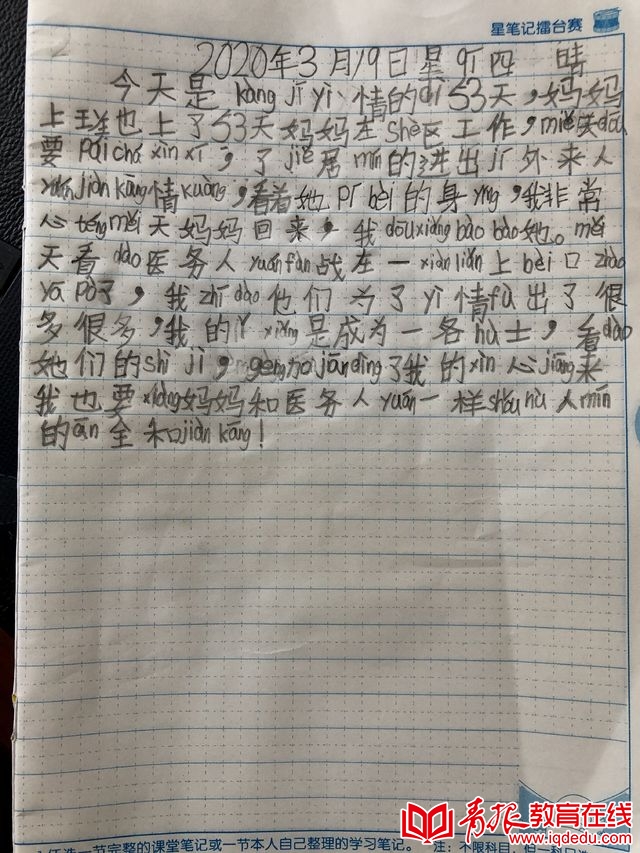 星笔记擂台赛
2020年3月19日星期四 晴
今天是kàng jī yì情的dì 53天，妈妈
上班也上了53天妈妈在shè区工作，měi天dōu
要pái chá xìn xī，了jiě居mín的进出jí外来人
yuán jiàn kāng情kuàng，看着她pí bèi的身yǐng，我非常
心téng měi天妈妈回来，我dōu xiǎng bào bào她。měi
天看dào医务人yuán fàn战在一xiàn liǎn上bèi口zhào
yā pò了，我zhī dào他们为了yì情fù出了很
多很多，我的lǐ xiǎng是成为一名hù士，看dào
她们的shì jì，gèng加jiān dìng了我的xìn心jiāng来
我也要xiàng妈妈和医务人yuán一样shǒu hù人mín
的ān全和jiàn kāng！
青报教育在线
www.iqdedu.com
任选一节完整的课堂笔记或一节本人自己整理的学习笔记。 注：不限科目